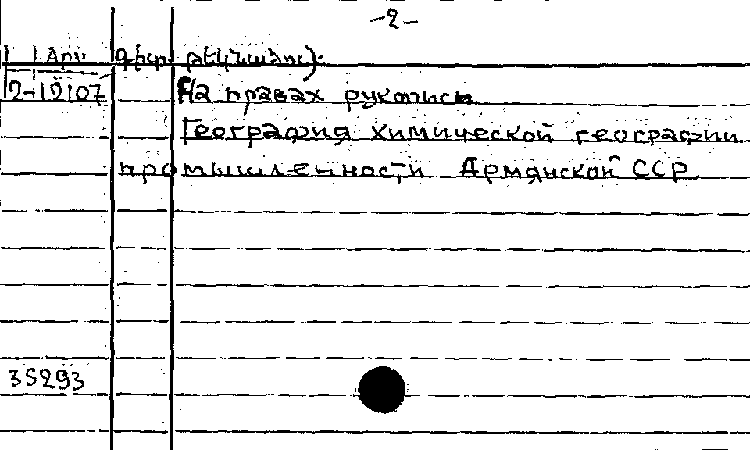 -2-
գիտ. թեկնածու):
2-19107 На правах рукописи
География химической географии
промышленности Армянской ССР
35293